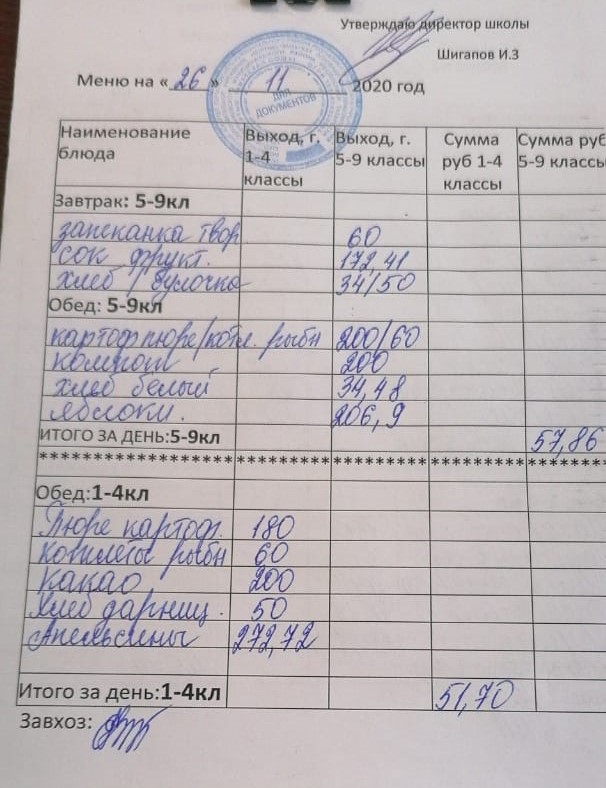 Утверждаю директор школы
Шигапов И.З
Меню на «26» 11 2020 год
ДЛЯ ДОКУМЕНТОВ
Наименование блюда Выход, г. 1-4 классы Выход, г. 5-9 классы Сумма руб 1-4 классы Сумма руб 5-9 классы
Завтрак: 5-9кл
запеканка твор 60
сок фрукт. 172,41
хлеб / булочка 34/50
Обед: 5-9кл
картоф пюре/котл. рыбн 200/60
компот 200
хлеб белый 34,48
яблоки. 206,9
ИТОГО ЗА ДЕНЬ:5-9кл 57,86
Обед:1-4кл
Пюре картоф. 180
котлеты рыбн 60
какао 200
Хлеб дарниц. 50
Апельсины 272,72
Итого за день:1-4кл 51,70
Завхоз: